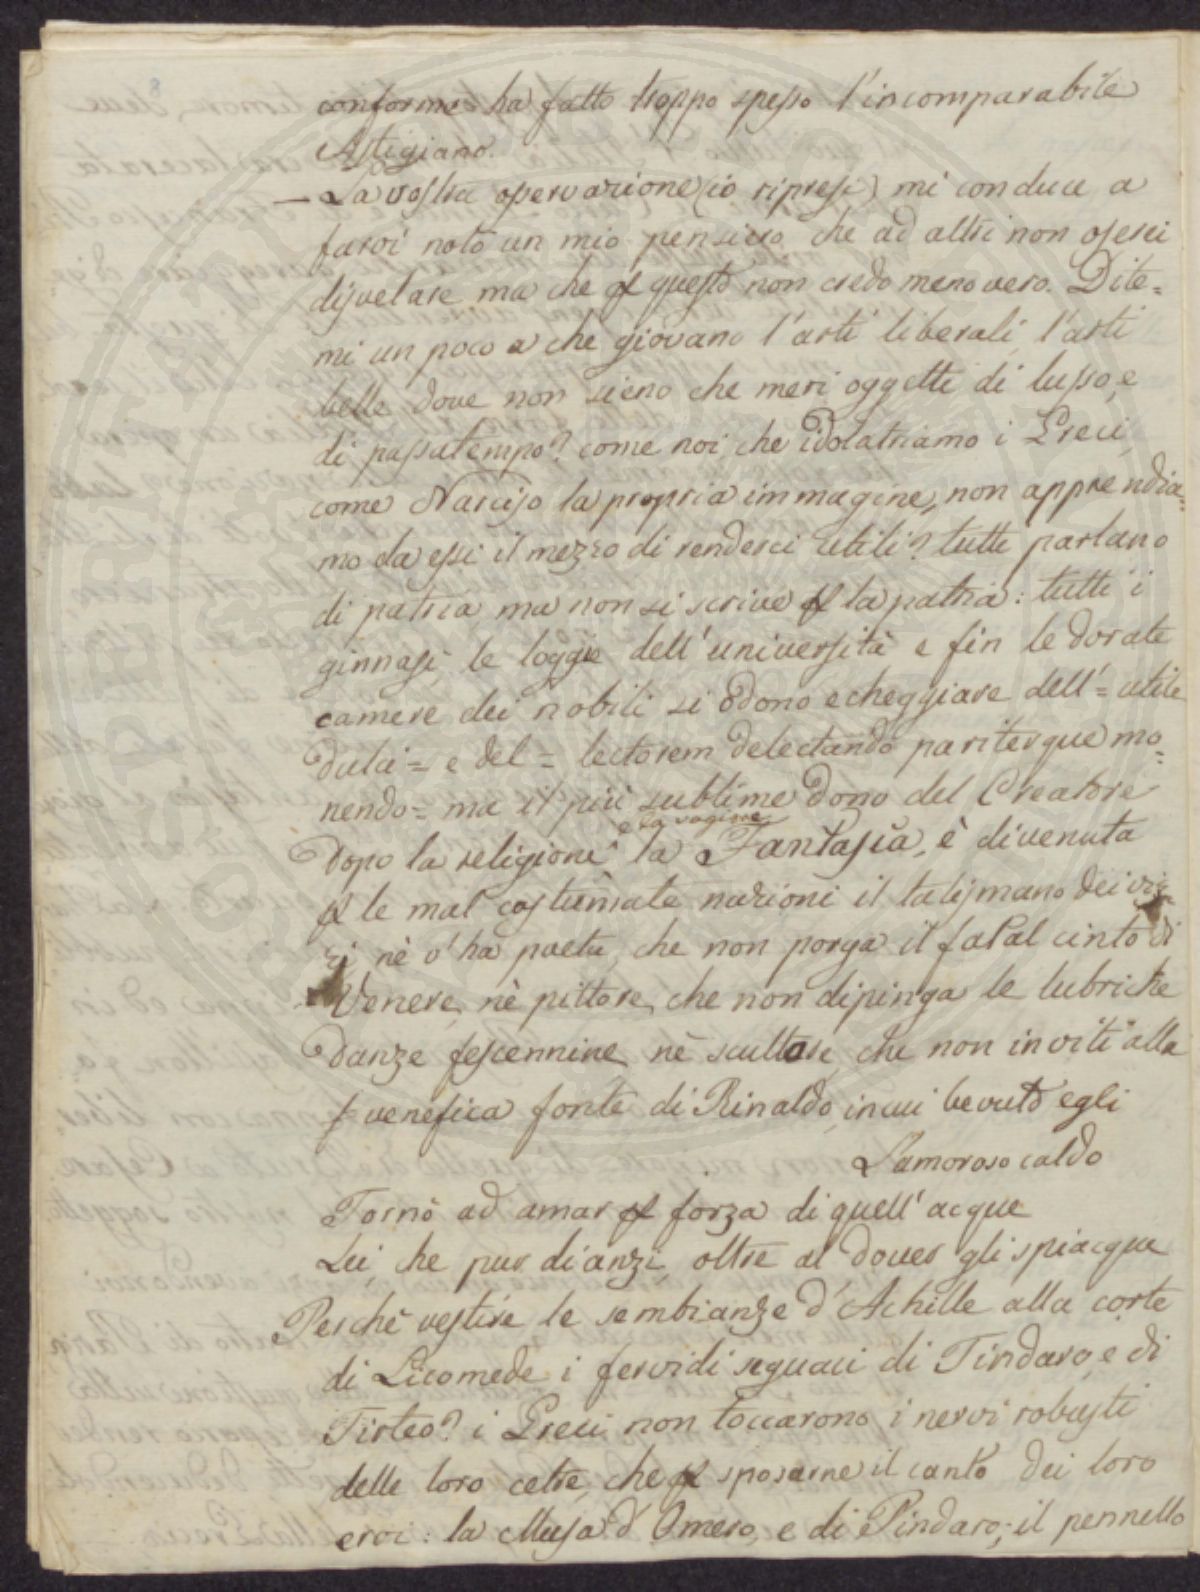 conforme ha fatto troppo spesso l'incomparabile
Astigiano.
— La vostra osservazione (io ripresi) mi conduce a
farvi noto un mio pensiero che ad altri non oserei
disvelare ma che per questo non credo meno vero. Dite=
mi un poco a che giovano l'arti liberali, l'arti
belle dove non sieno che meri oggetti di lusso, e
di passatempo? come noi che idolatriamo i Greci,
come Narciso la propria immagine, non apprendia=
mo da essi il mezzo di renderci utili? tutti parlano
di patria, ma non si scrive per la patria: tutti i
ginnasi, le loggie dell'università e fin le dorate
camere dei nobili si odono echeggiare dell'= utile
dulci = e del = lectorem delectando pariterque mo=
nendo = ma il più sublime dono del Creatore
e la ragione
dopo la religione la Fantasia, è divenuta
per le mal costumate nazioni il talismano dei vi
zi, nè v'ha poeta, che non porga il fatal cinto di
Venere, nè pittore, che non dipinga le lubriche
danze fescennine nè scultore, che non inviti alla
venefica fonte di Rinaldo, in cui bevuto egli
L'amoroso caldo
Tornò ad amar per forza di quell'acque
Lei, che pur dianzi, oltre al dover gli spiacque
Perchè vestire le sembianze d'Achille alla corte
di Licomede, i fervidi seguaci di Tindaro, e di
Tirteo? i Greci non toccarono i nervi robusti
delle loro cetre, che per sposarne il canto dei loro
eroi: la Musa d'Omero, e di Pindaro; il pennello